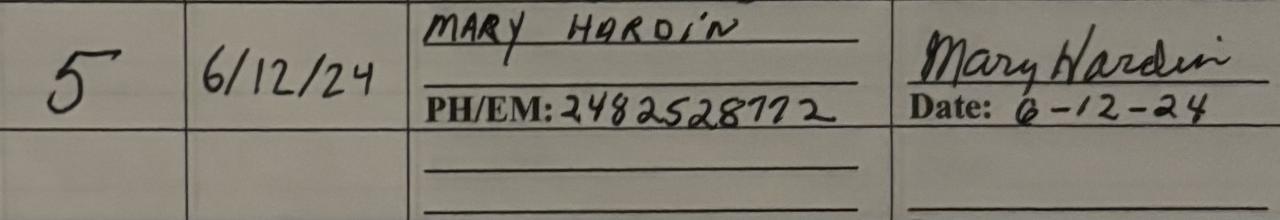 5
6/12/24
MARY HARDIN
PH/EM: 2482528772
Mary Hardin
Date: 6-12-24